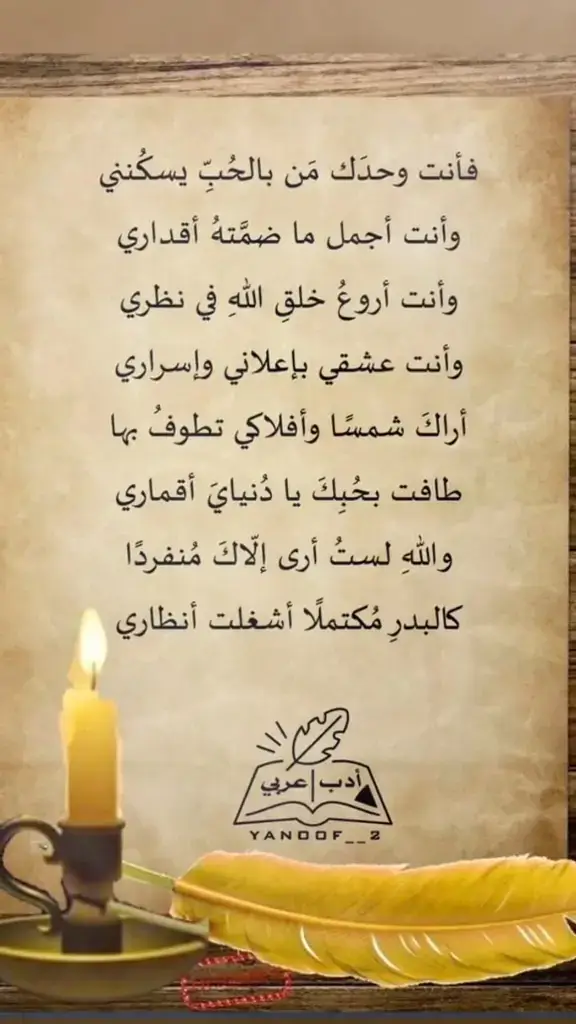 فأنت وحدَك مَن بالحُبِّ يسكُنني
وأنت أجمل ما ضمَّتهُ أقداري
وأنت أروعُ خلقِ اللهِ في نظري
وأنت عشقي بإعلاني وإسراري
أراكَ شمسًا وأفلاكي تطوفُ بها
طافت بحُبِكَ يا دُنيايَ أقماري
واللهِ لستُ أرى إلّاكَ مُنفردًا
كالبدرِ مُكتملًا أشغلت أنظاري
أدب عربي
YANOOF__2